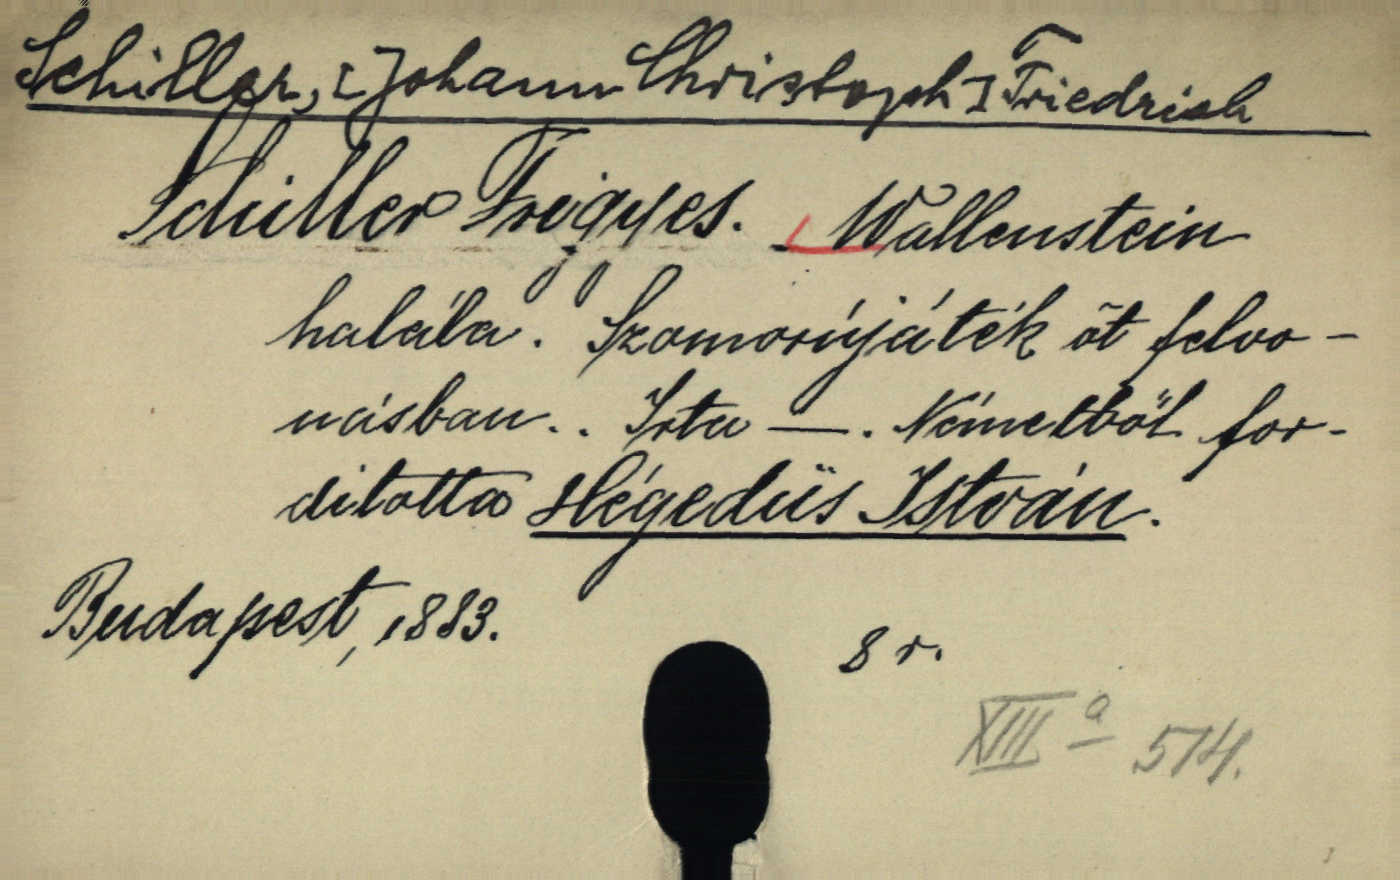 Schiller, [Johann Christoph] Friedrich
Schiller Frigyes. Wallenstein
halála. Szomorújáték öt felvo-
násban.. Irta —. Németből for-
ditotta Hégedüs István.
Budapest, 1883.
8 r.
XIII a 514.